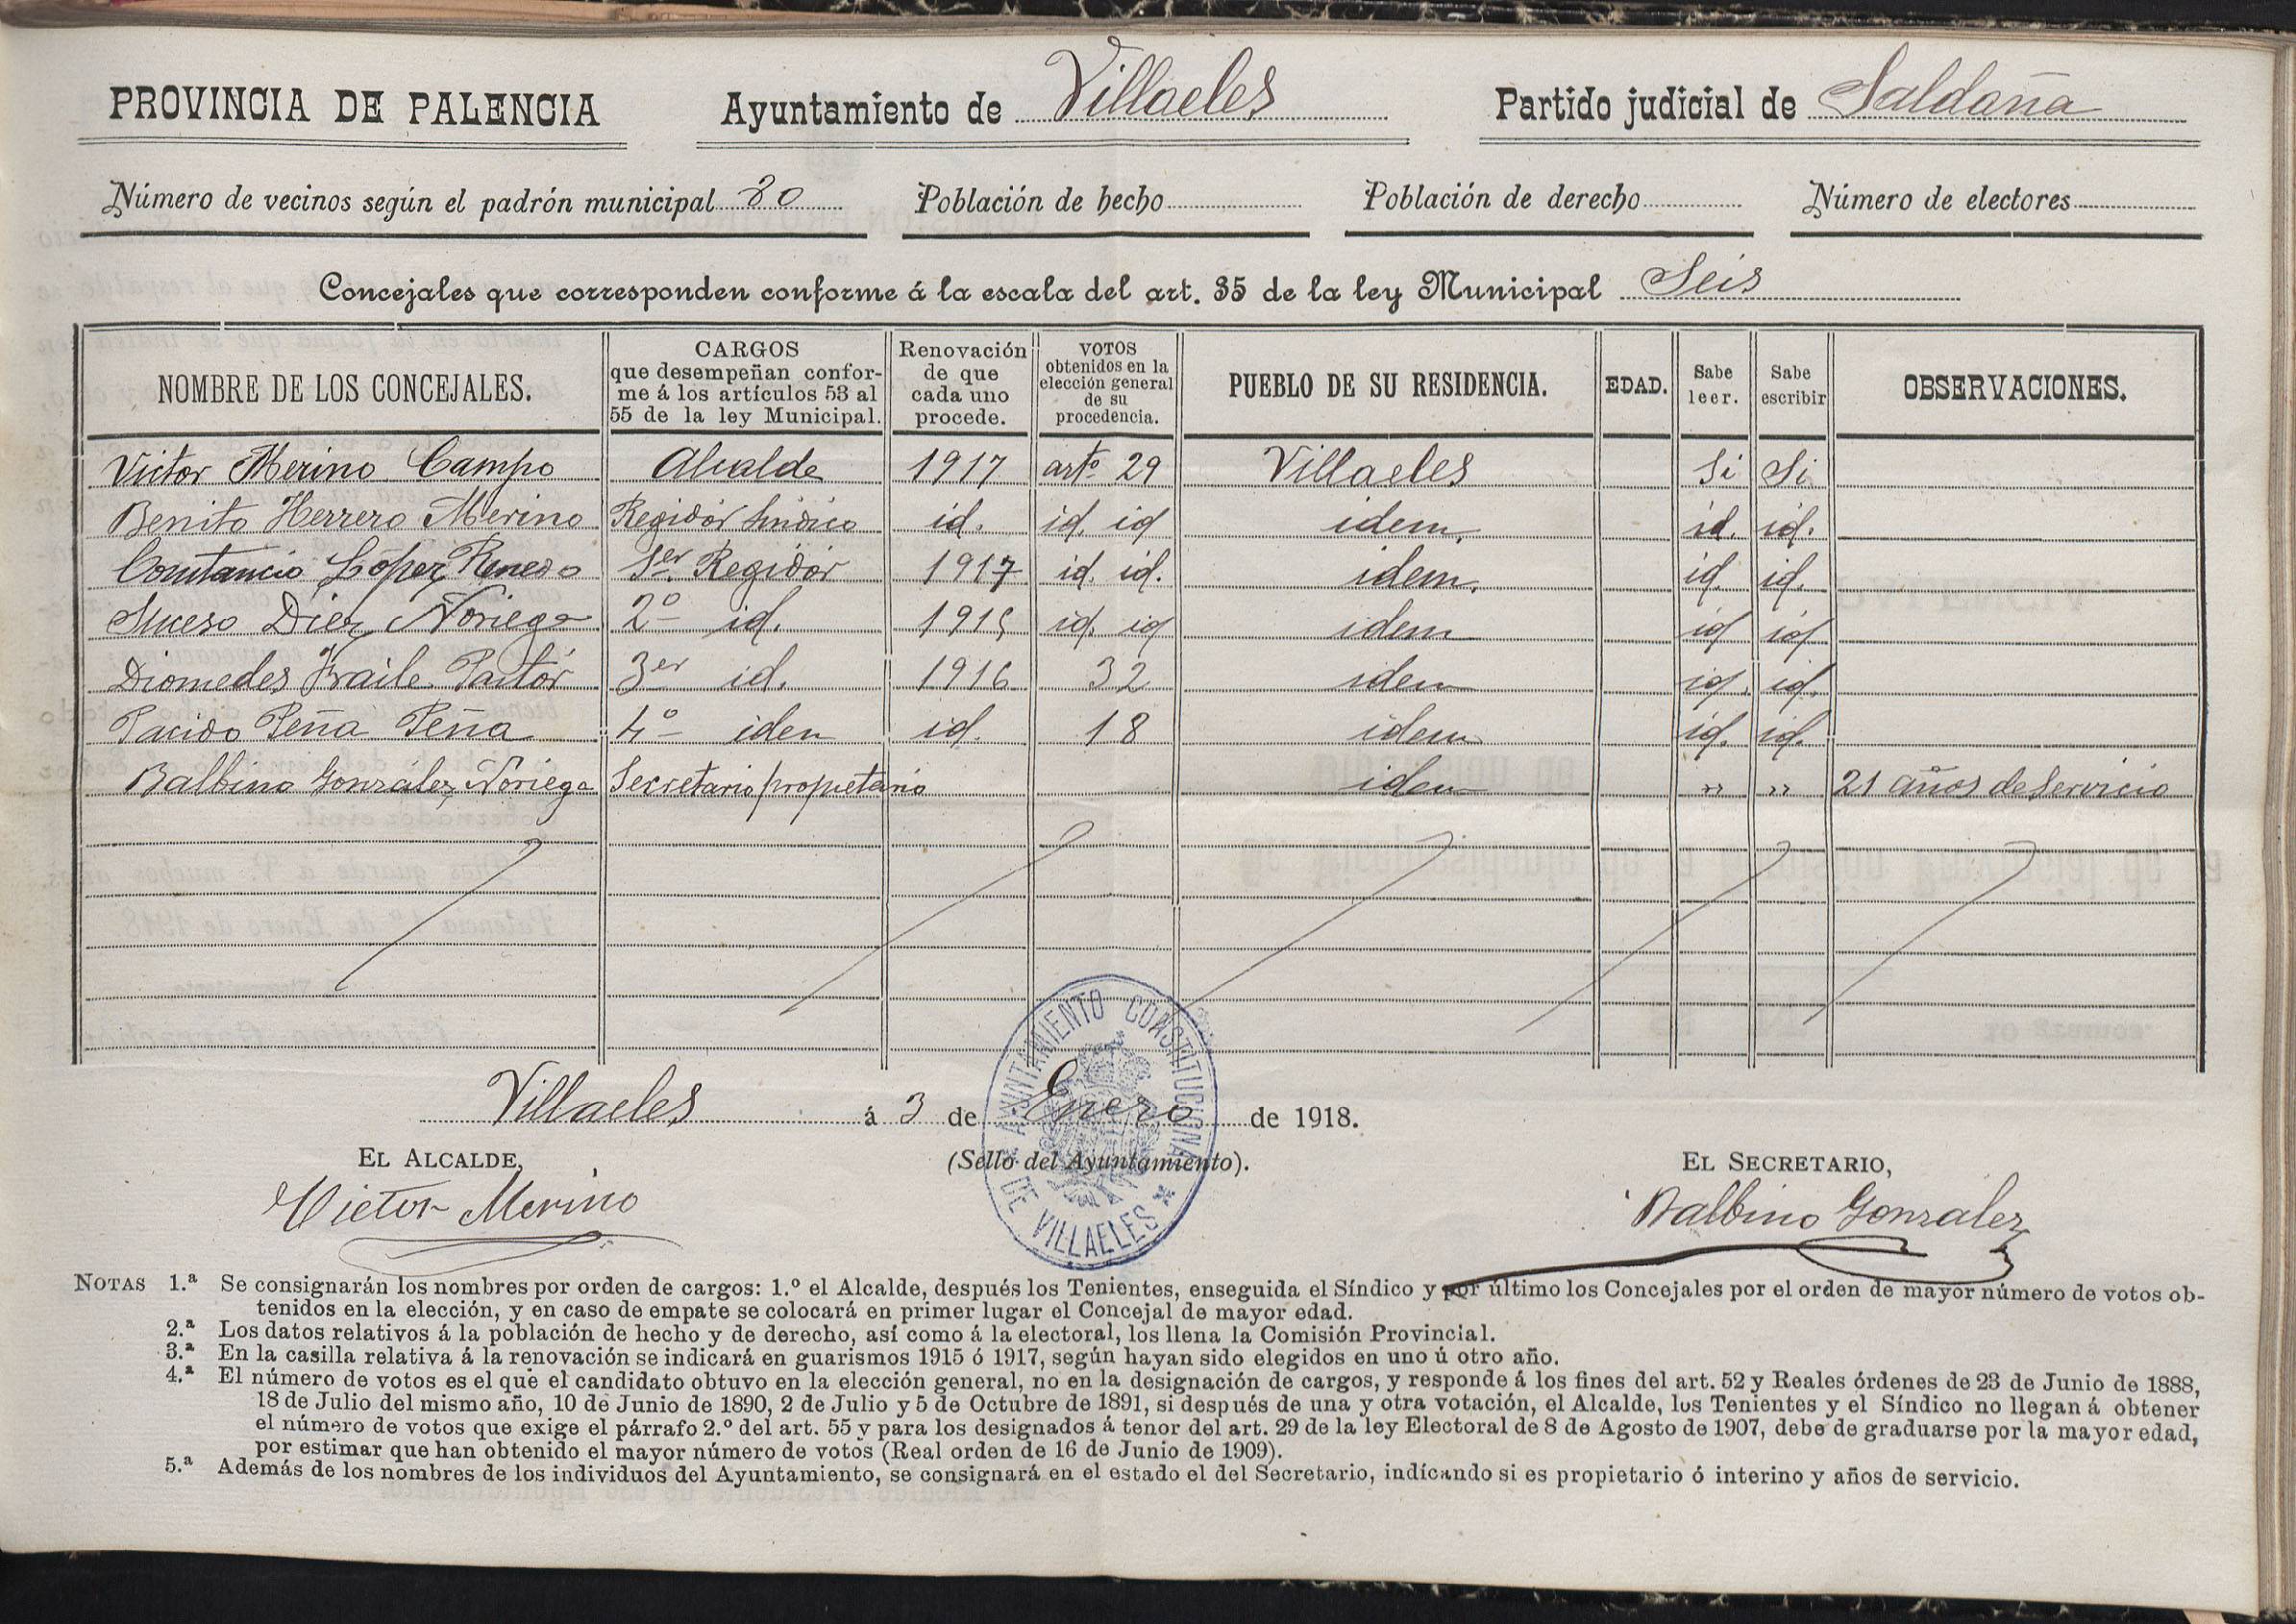 PROVINCIA DE PALENCIA Ayuntamiento de Villaeles Partido judicial de Saldaña
Número de vecinos según el padrón municipal 80 Población de hecho Población de derecho Número de electores
Concejales que corresponden conforme á la escala del art. 35 de la ley Municipal Seis
NOMBRE DE LOS CONCEJALES. CARGOS que desempeñan conforme á los artículos 53 al 55 de la ley Municipal. Renovación de que cada uno procede. VOTOS obtenidos en la elección general de su procedencia. PUEBLO DE SU RESIDENCIA. EDAD. Sabe leer. Sabe escribir OBSERVACIONES.
Victor Merino Campo Alcalde 1917 artº 29 Villaeles Si Si
Benito Herrero Merino Regidor Sindico id. id. id idem. id. id.
Constancio López Renedo 1er Regidor 1917 id. id. idem. id id.
Suceso Diez Noriega 2º id. 1915 id. id idem id id
Diomedes Fraile Pastor 3er id. 1916 32 idem id. id.
Pacido Peña Peña 4º iden id. 18 idem id. id.
Balbino González Noriega Secretario propietario idem " " 21 años de Servicio
Villaeles á 3 de Enero de 1918.
EL ALCALDE, (Sello del Ayuntamiento). EL SECRETARIO,
Victor Merino Balbino Gonzalez
AYUNTAMIENTO CONSTITUCIONAL DE VILLAELES
NOTAS 1.ª Se consignarán los nombres por orden de cargos: 1.º el Alcalde, después los Tenientes, enseguida el Síndico y por último los Concejales por el orden de mayor número de votos ob-
tenidos en la elección, y en caso de empate se colocará en primer lugar el Concejal de mayor edad.
2.ª Los datos relativos á la población de hecho y de derecho, así como á la electoral, los llena la Comisión Provincial.
3.ª En la casilla relativa á la renovación se indicará en guarismos 1915 ó 1917, según hayan sido elegidos en uno ú otro año.
4.ª El número de votos es el que el candidato obtuvo en la elección general, no en la designación de cargos, y responde á los fines del art. 52 y Reales órdenes de 23 de Junio de 1888,
18 de Julio del mismo año, 10 de Junio de 1890, 2 de Julio y 5 de Octubre de 1891, si después de una y otra votación, el Alcalde, los Tenientes y el Síndico no llegan á obtener
el número de votos que exige el párrafo 2.º del art. 55 y para los designados á tenor del art. 29 de la ley Electoral de 8 de Agosto de 1907, debe de graduarse por la mayor edad,
por estimar que han obtenido el mayor número de votos (Real orden de 16 de Junio de 1909).
5.ª Además de los nombres de los individuos del Ayuntamiento, se consignará en el estado el del Secretario, indicando si es propietario ó interino y años de servicio.